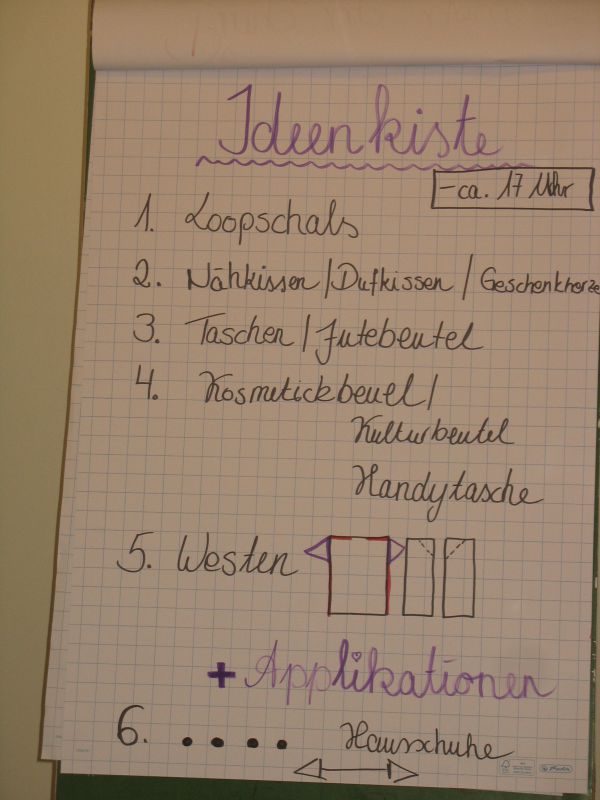 Ideenkiste
- ca. 17 Uhr
1. Loopschals
2. Nähkissen / Dufkissen / Geschenkherze
3. Taschen / Jutebeutel
4. Kosmetickbeuel /
Kulturbeutel
Handytasche
5. Westen
+ Applikationen
6. • • • • Hausschuhe